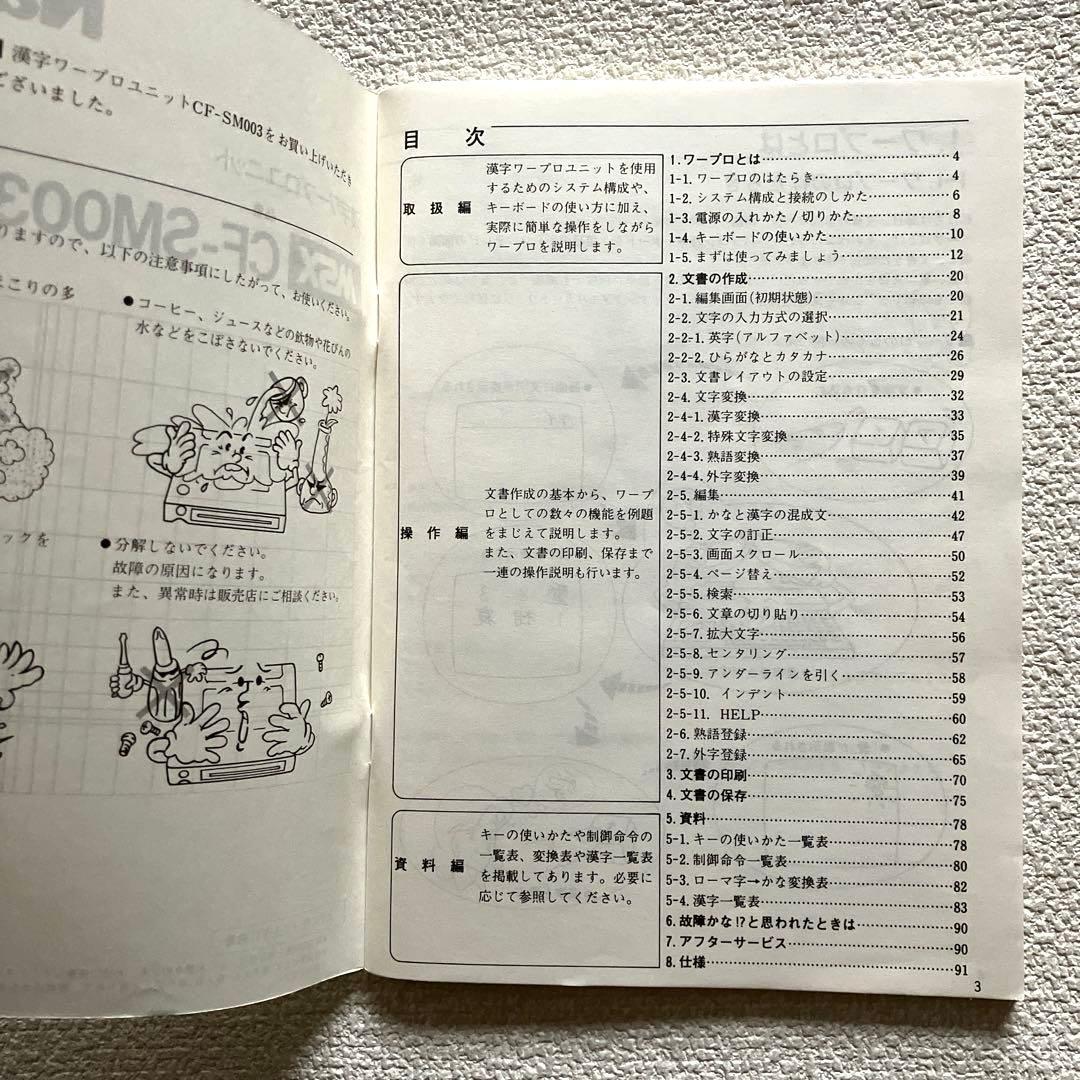 漢字ワープロユニットCF-SM003をお買い上げいただき
ございました。
りますので、以下の注意事項にしたがって、お使いください。
こりの多
●コーヒー、ジュースなどの飲物や花びんの
水などをこぼさないでください。
ックを
●分解しないでください。
故障の原因になります。
また、異常時は販売店にご相談ください。
目 次
取扱編
漢字ワープロユニットを使用
するためのシステム構成や、
キーボードの使い方に加え、
実際に簡単な操作をしながら
ワープロを説明します。
1. ワープロとは 4
1-1. ワープロのはたらき 4
1-2. システム構成と接続のしかた 6
1-3. 電源の入れかた/切りかた 8
1-4. キーボードの使いかた 10
1-5. まずは使ってみましょう 12
操作編
文書作成の基本から、ワープ
ロとしての数々の機能を例題
をまじえて説明します。
また、文書の印刷、保存まで
一連の操作説明も行います。
2. 文書の作成 20
2-1. 編集画面(初期状態) 20
2-2. 文字の入力方式の選択 21
2-2-1. 英字(アルファベット) 24
2-2-2. ひらがなとカタカナ 26
2-3. 文書レイアウトの設定 29
2-4. 文字変換 32
2-4-1. 漢字変換 33
2-4-2. 特殊文字変換 35
2-4-3. 熟語変換 37
2-4-4. 外字変換 39
2-5. 編集 41
2-5-1. かなと漢字の混成文 42
2-5-2. 文字の訂正 47
2-5-3. 画面スクロール 50
2-5-4. ページ替え 52
2-5-5. 検索 53
2-5-6. 文章の切り貼り 54
2-5-7. 拡大文字 56
2-5-8. センタリング 57
2-5-9. アンダーラインを引く 58
2-5-10. インデント 59
2-5-11. HELP 60
2-6. 熟語登録 62
2-7. 外字登録 65
3. 文書の印刷 70
4. 文書の保存 75
資料編
キーの使いかたや制御命令の
一覧表、変換表や漢字一覧表
を掲載してあります。必要に
応じて参照してください。
5. 資料 78
5-1. キーの使いかた一覧表 78
5-2. 制御命令一覧表 80
5-3. ローマ字→かな変換表 82
5-4. 漢字一覧表 83
6. 故障かな!?と思われたときは 90
7. アフターサービス 90
8. 仕様 91
3